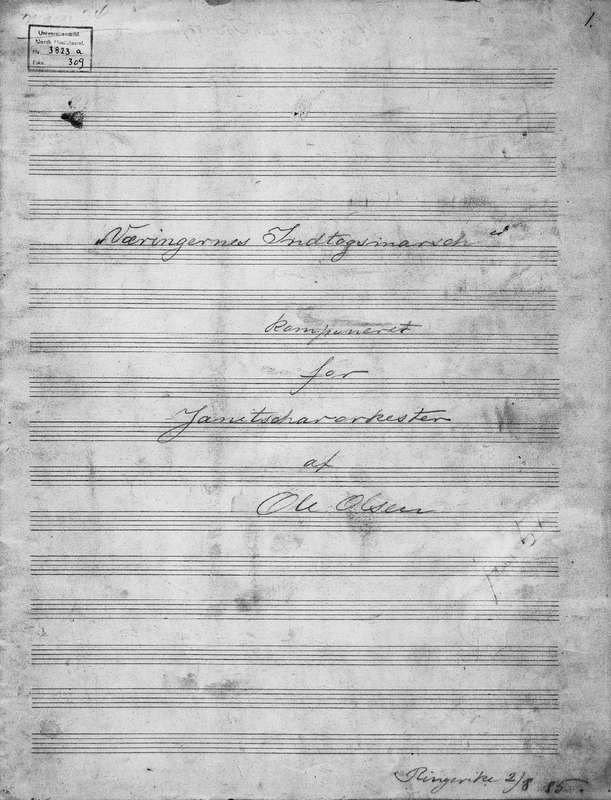 1.
Universitetsbibl.
Norsk Musiksaml.
Nr. 3823 a
309
„Væringernes Indtogsmarsch"
komponeret
for
Janitscharorkester
af
Ole Olsen
Ringerike 2/8 85.